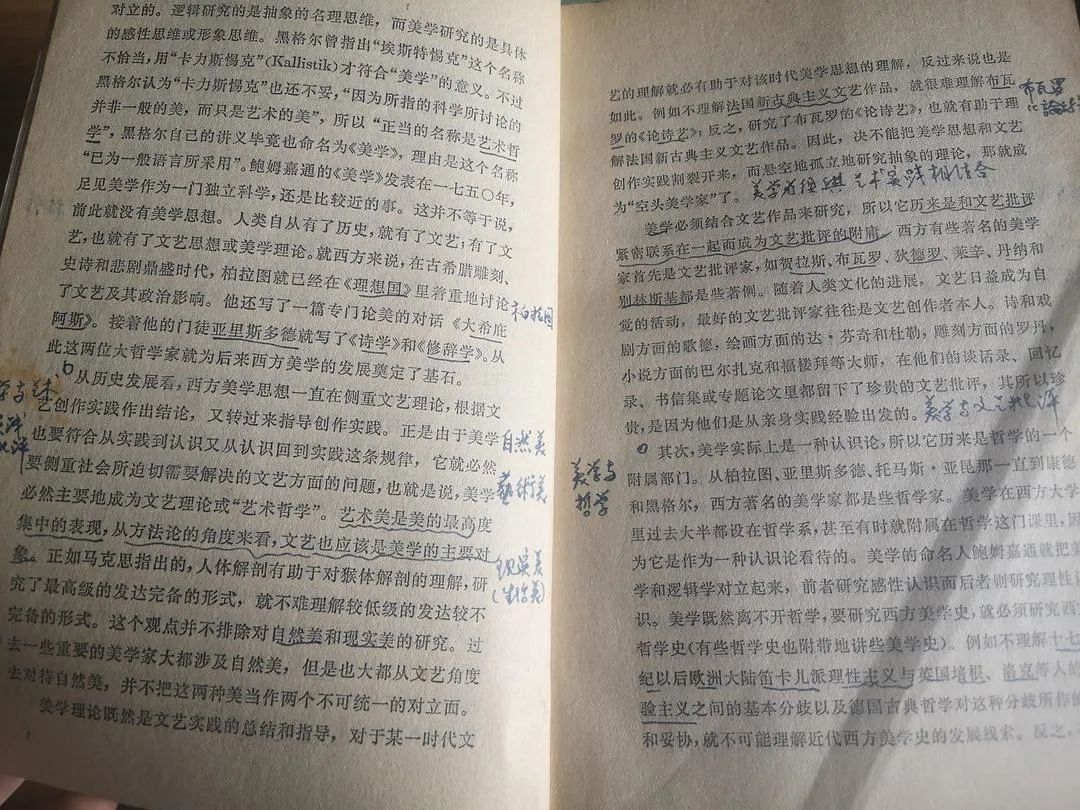 对立的。逻辑研究的是抽象的名理思维，而美学研究的是具体
的感性思维或形象思维。黑格尔曾指出“埃斯特惕克”这个名称
不恰当，用“卡力斯惕克”(Kallistik)才符合“美学”的意义。不过
黑格尔认为“卡力斯惕克”也还不妥，“因为所指的科学所讨论的
并非一般的美，而只是艺术的美”，所以“正当的名称是艺术哲
学”，黑格尔自己的讲义毕竟也命名为《美学》，理由是这个名称
“已为一般语言所采用”。鲍姆嘉通的《美学》发表在一七五〇年，
足见美学作为一门独立科学，还是比较近的事。这并不等于说，
前此就没有美学思想。人类自从有了历史，就有了文艺；有了文
艺，也就有了文艺思想或美学理论。就西方来说，在古希腊雕刻、
史诗和悲剧鼎盛时代，柏拉图就已经在《理想国》里着重地讨论
了文艺及其政治影响。他还写了一篇专门论美的对话《大希庇
阿斯》。接着他的门徒亚里斯多德就写了《诗学》和《修辞学》。从
此这两位大哲学家就为后来西方美学的发展奠定了基石。
柏拉图
从历史发展看，西方美学思想一直在侧重文艺理论，根据文
艺创作实践作出结论，又转过来指导创作实践。正是由于美学
也要符合从实践到认识又从认识回到实践这条规律，它就必然
要侧重社会所迫切需要解决的文艺方面的问题，也就是说，美学
必然主要地成为文艺理论或“艺术哲学”。艺术美是美的最高度
集中的表现，从方法论的角度来看，文艺也应该是美学的主要对
象。正如马克思指出的，人体解剖有助于对猴体解剖的理解，研
究了最高级的发达完备的形式，就不难理解较低级的发达较不
完备的形式。这个观点并不排除对自然美和现实美的研究。过
去一些重要的美学家大都涉及自然美，但是也大都从文艺角度
去对待自然美，并不把这两种美当作两个不可统一的对立面。
美学理论既然是文艺实践的总结和指导，对于某一时代文
自然美
藝術美
现实美
(生活美)
艺的理解就必有助于对该时代美学思想的理解，反过来说也是
如此。例如不理解法国新古典主义文艺作品，就很难理解布瓦
罗的《论诗艺》，反之，研究了布瓦罗的《论诗艺》，也就有助于理
解法国新古典主义文艺作品。因此，决不能把美学思想和文艺
创作实践割裂开来，而悬空地孤立地研究抽象的理论，那就成
为“空头美学家”了。
布瓦罗
美学必须结合文艺作品来研究，所以它历来是和文艺批评
紧密联系在一起而成为文艺批评的附庸。西方有些著名的美学
家首先是文艺批评家，如贺拉斯、布瓦罗、狄德罗、莱辛、丹纳和
别林斯基都是些著例。随着人类文化的进展，文艺日益成为自
觉的活动，最好的文艺批评家往往是文艺创作者本人。诗和戏
剧方面的歌德，绘画方面的达·芬奇和杜勒，雕刻方面的罗丹，
小说方面的巴尔扎克和福楼拜等大师，在他们的谈话录、回忆
录、书信集或专题论文里都留下了珍贵的文艺批评，其所以珍
贵，是因为他们是从亲身实践经验出发的。
美学与文艺批评
其次，美学实际上是一种认识论，所以它历来是哲学的一个
附属部门。从柏拉图、亚里斯多德、托马斯·亚昆那一直到康德
和黑格尔，西方著名的美学家都是些哲学家。美学在西方大学
里过去大半都设在哲学系，甚至有时就附属在哲学这门课里，因
为它是作为一种认识论看待的。美学的命名人鲍姆嘉通就把美
学和逻辑学对立起来，前者研究感性认识而后者则研究理性认
识。美学既然离不开哲学，要研究西方美学史，就必须研究西
哲学史(有些哲学史也附带地讲些美学史)。例如不理解十七
纪以后欧洲大陆笛卡儿派理性主义与英国培根、洛克等人的
验主义之间的基本分歧以及德国古典哲学对这种分歧所作的
和妥协，就不可能理解近代西方美学史的发展线索。反之，
美学与
哲学